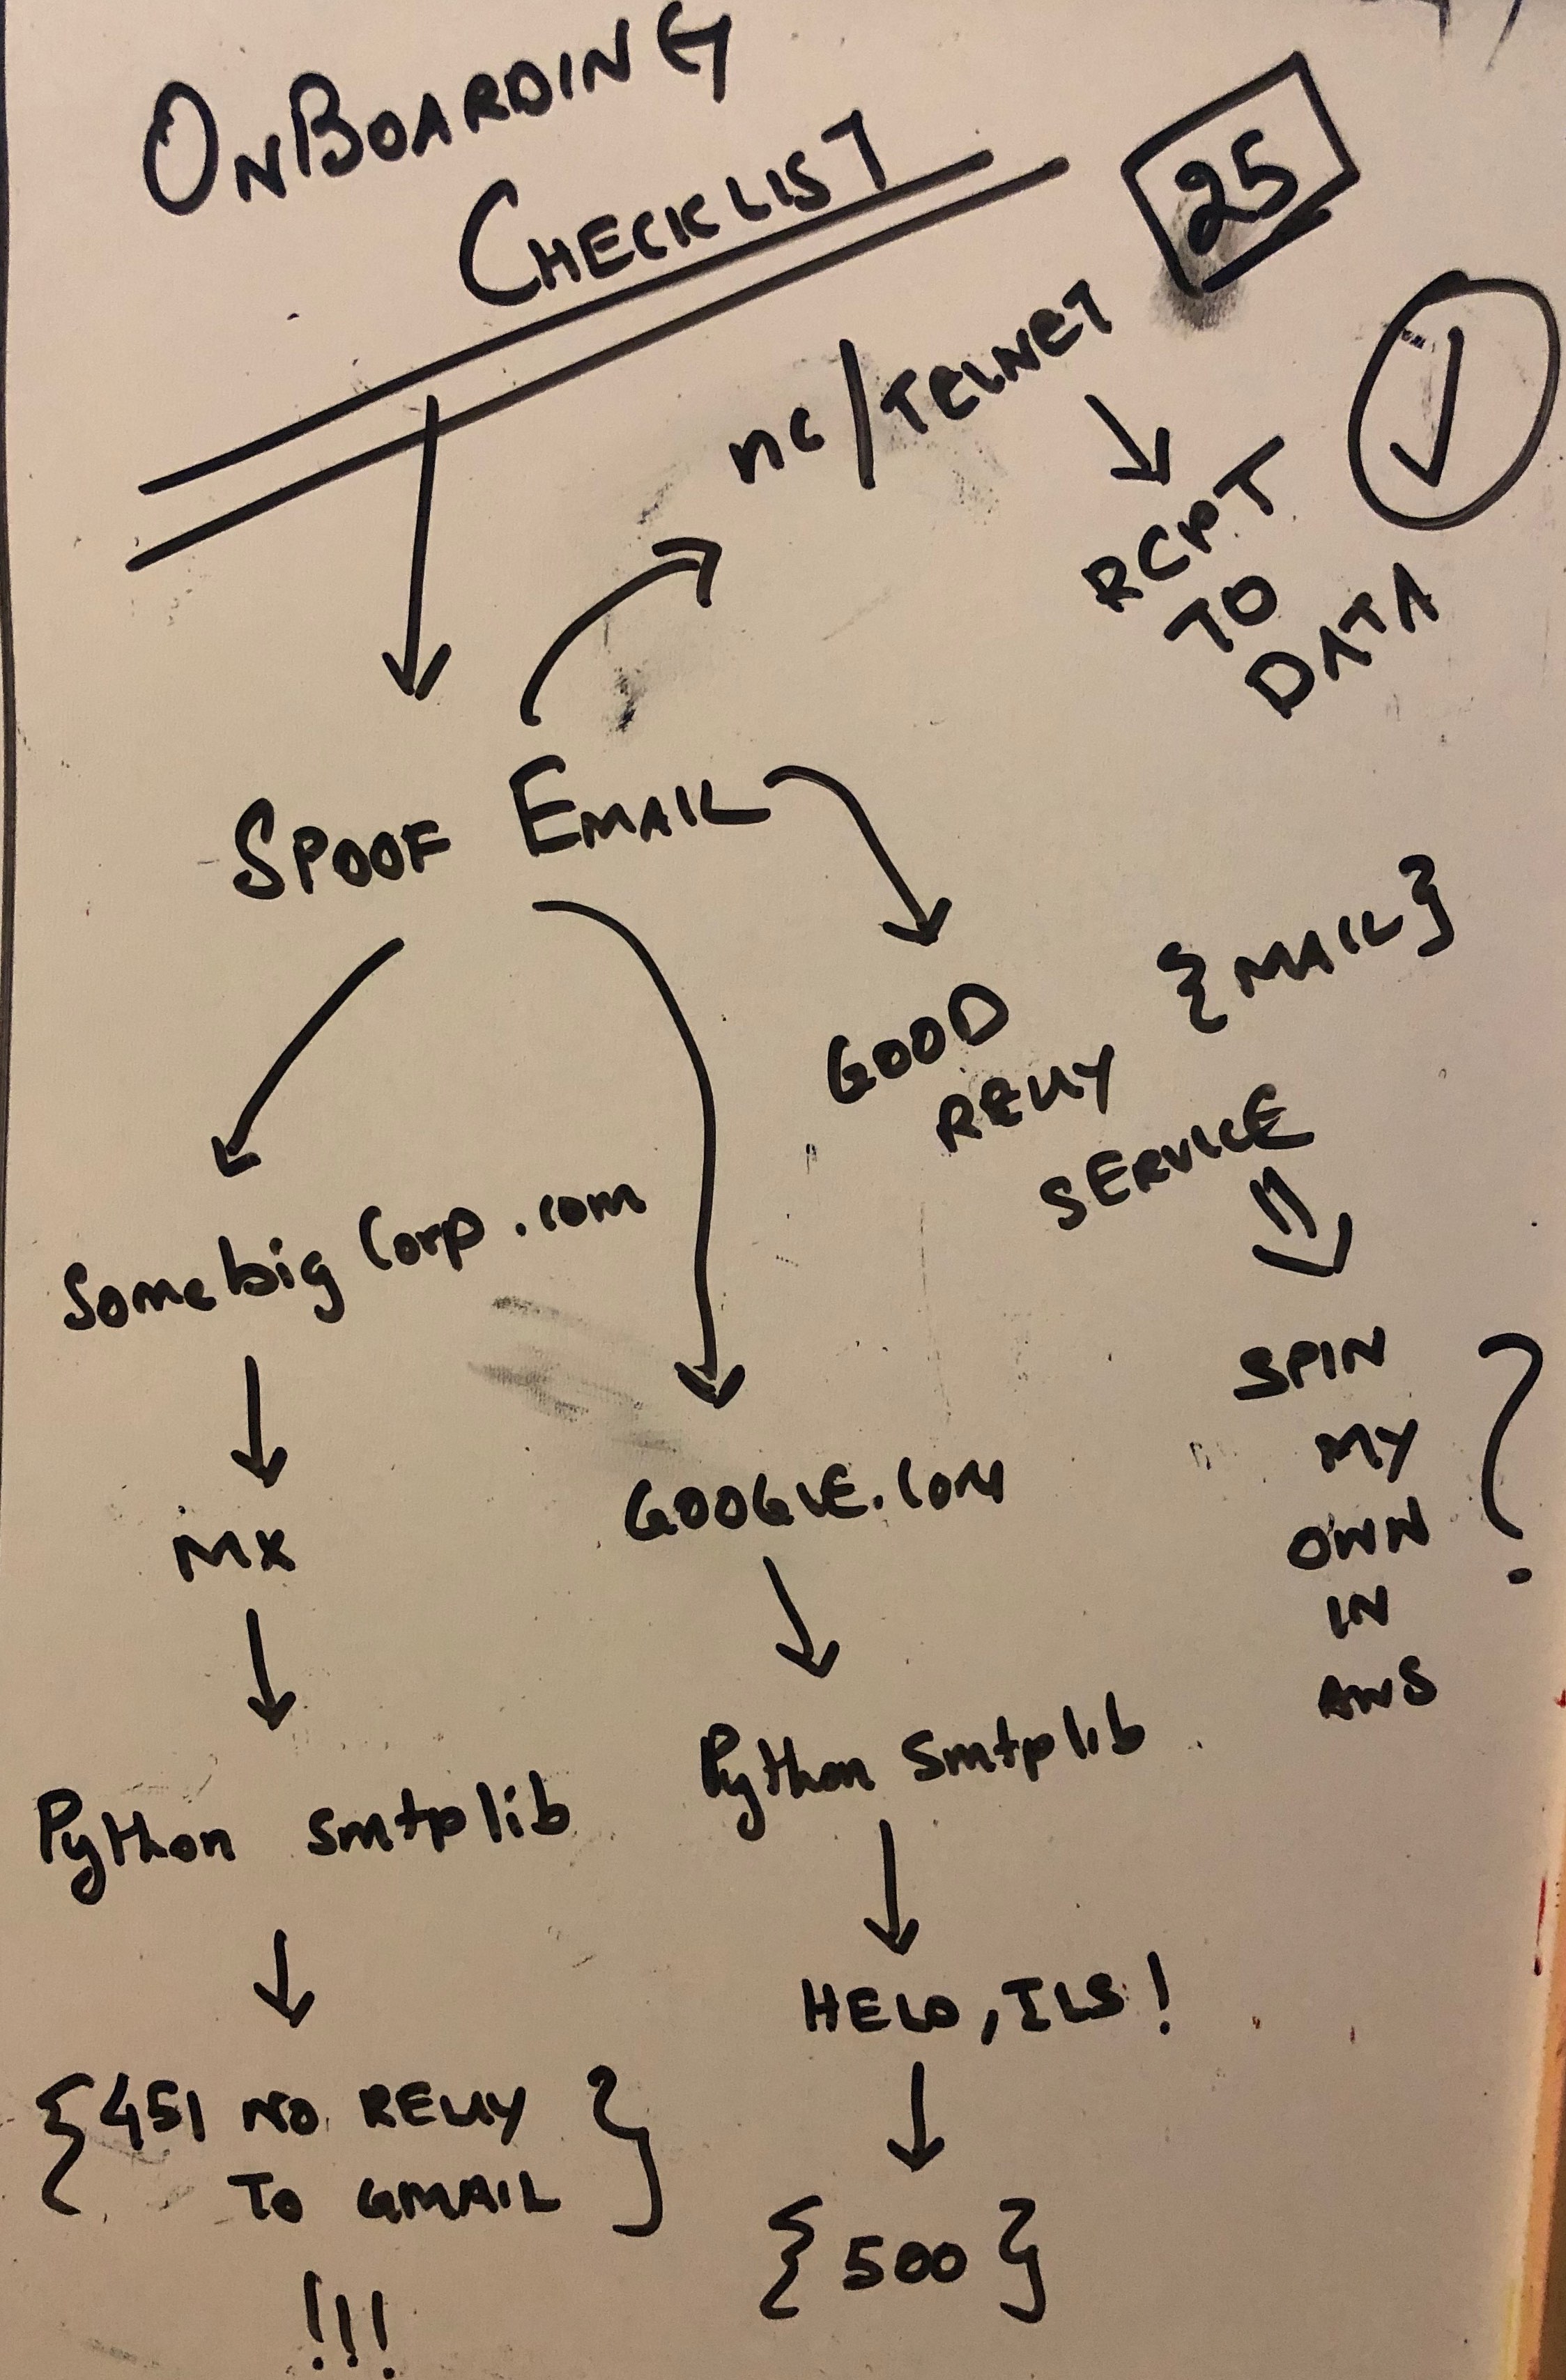 ONBOARDING
CHECKLIST
25
nc/TELNET
RCPT
TO
DATA
SPOOF EMAIL
{MAIL}
GOOD
RELAY
SERVICE
SPIN
MY
OWN
IN
AWS
?
Somebigcorp.com
MX
Python smtplib
{451 NO RELAY
TO GMAIL}
!!!
GOOGLE.COM
Python smtplib
HELO, TLS!
{500}